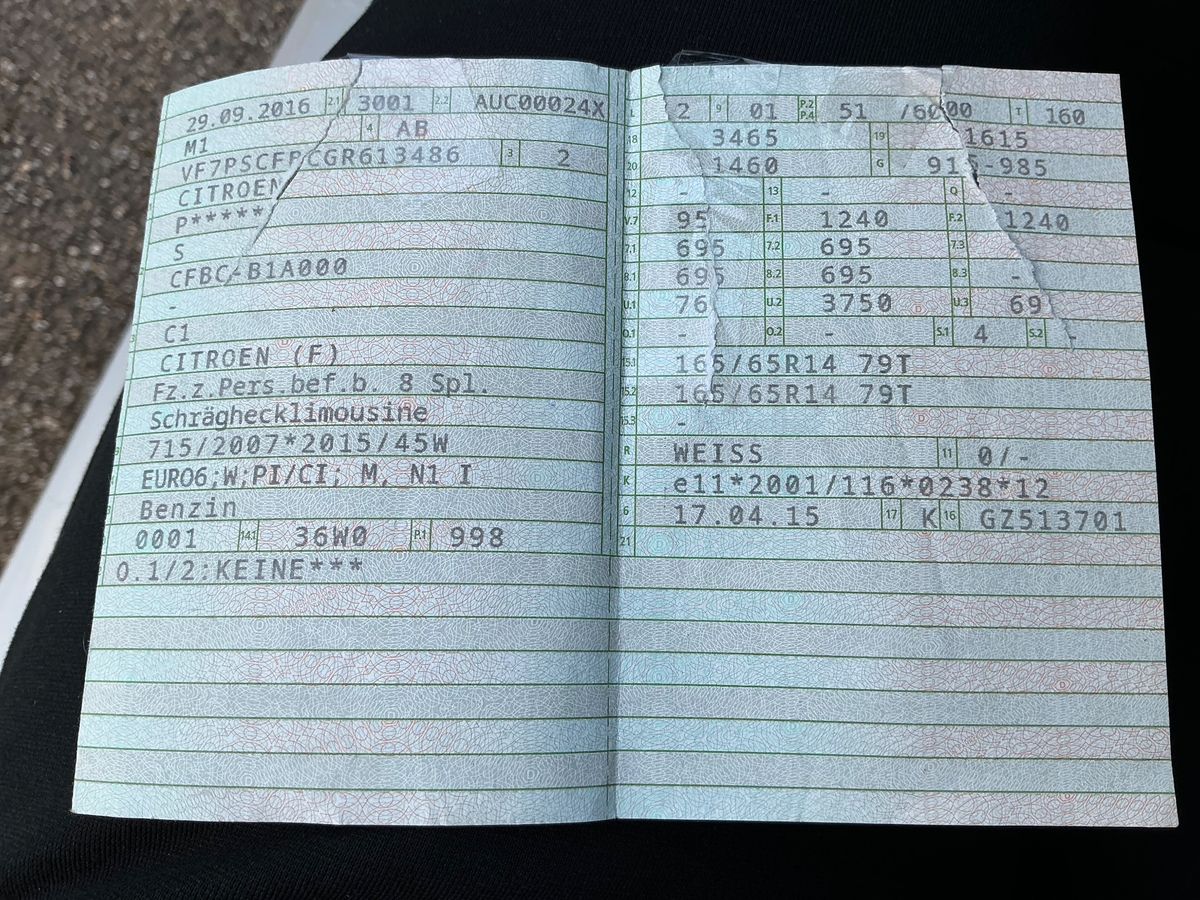 29.09.2016 2.1 3001 2.2 AUC00024X
M1 4 AB
VF7PSCFPCGR613486 3 2
CITROEN
P*****
S
CFBC-B1A000
-
C1
CITROEN (F)
Fz.z.Pers.bef.b. 8 Spl.
Schräghecklimousine
715/2007*2015/45W
EURO6;W;PI/CI; M, N1 I
Benzin
0001 14.1 36W0 P.1 998
O.1/2:KEINE***
L 2 9 01 P.2 P.4 51 /6000 T 160
18 3465 19 1615
20 1460 G 915-985
12 - 13 - Q -
V.7 95 F.1 1240 F.2 1240
7.1 695 7.2 695 7.3
8.1 695 8.2 695 8.3 -
U.1 76 U.2 3750 U.3 69
O.1 - O.2 - S.1 4 S.2 -
15.1 165/65R14 79T
15.2 165/65R14 79T
15.3 -
R WEISS 11 0/-
K e11*2001/116*0238*12
6 17.04.15 17 K 16 GZ513701
21